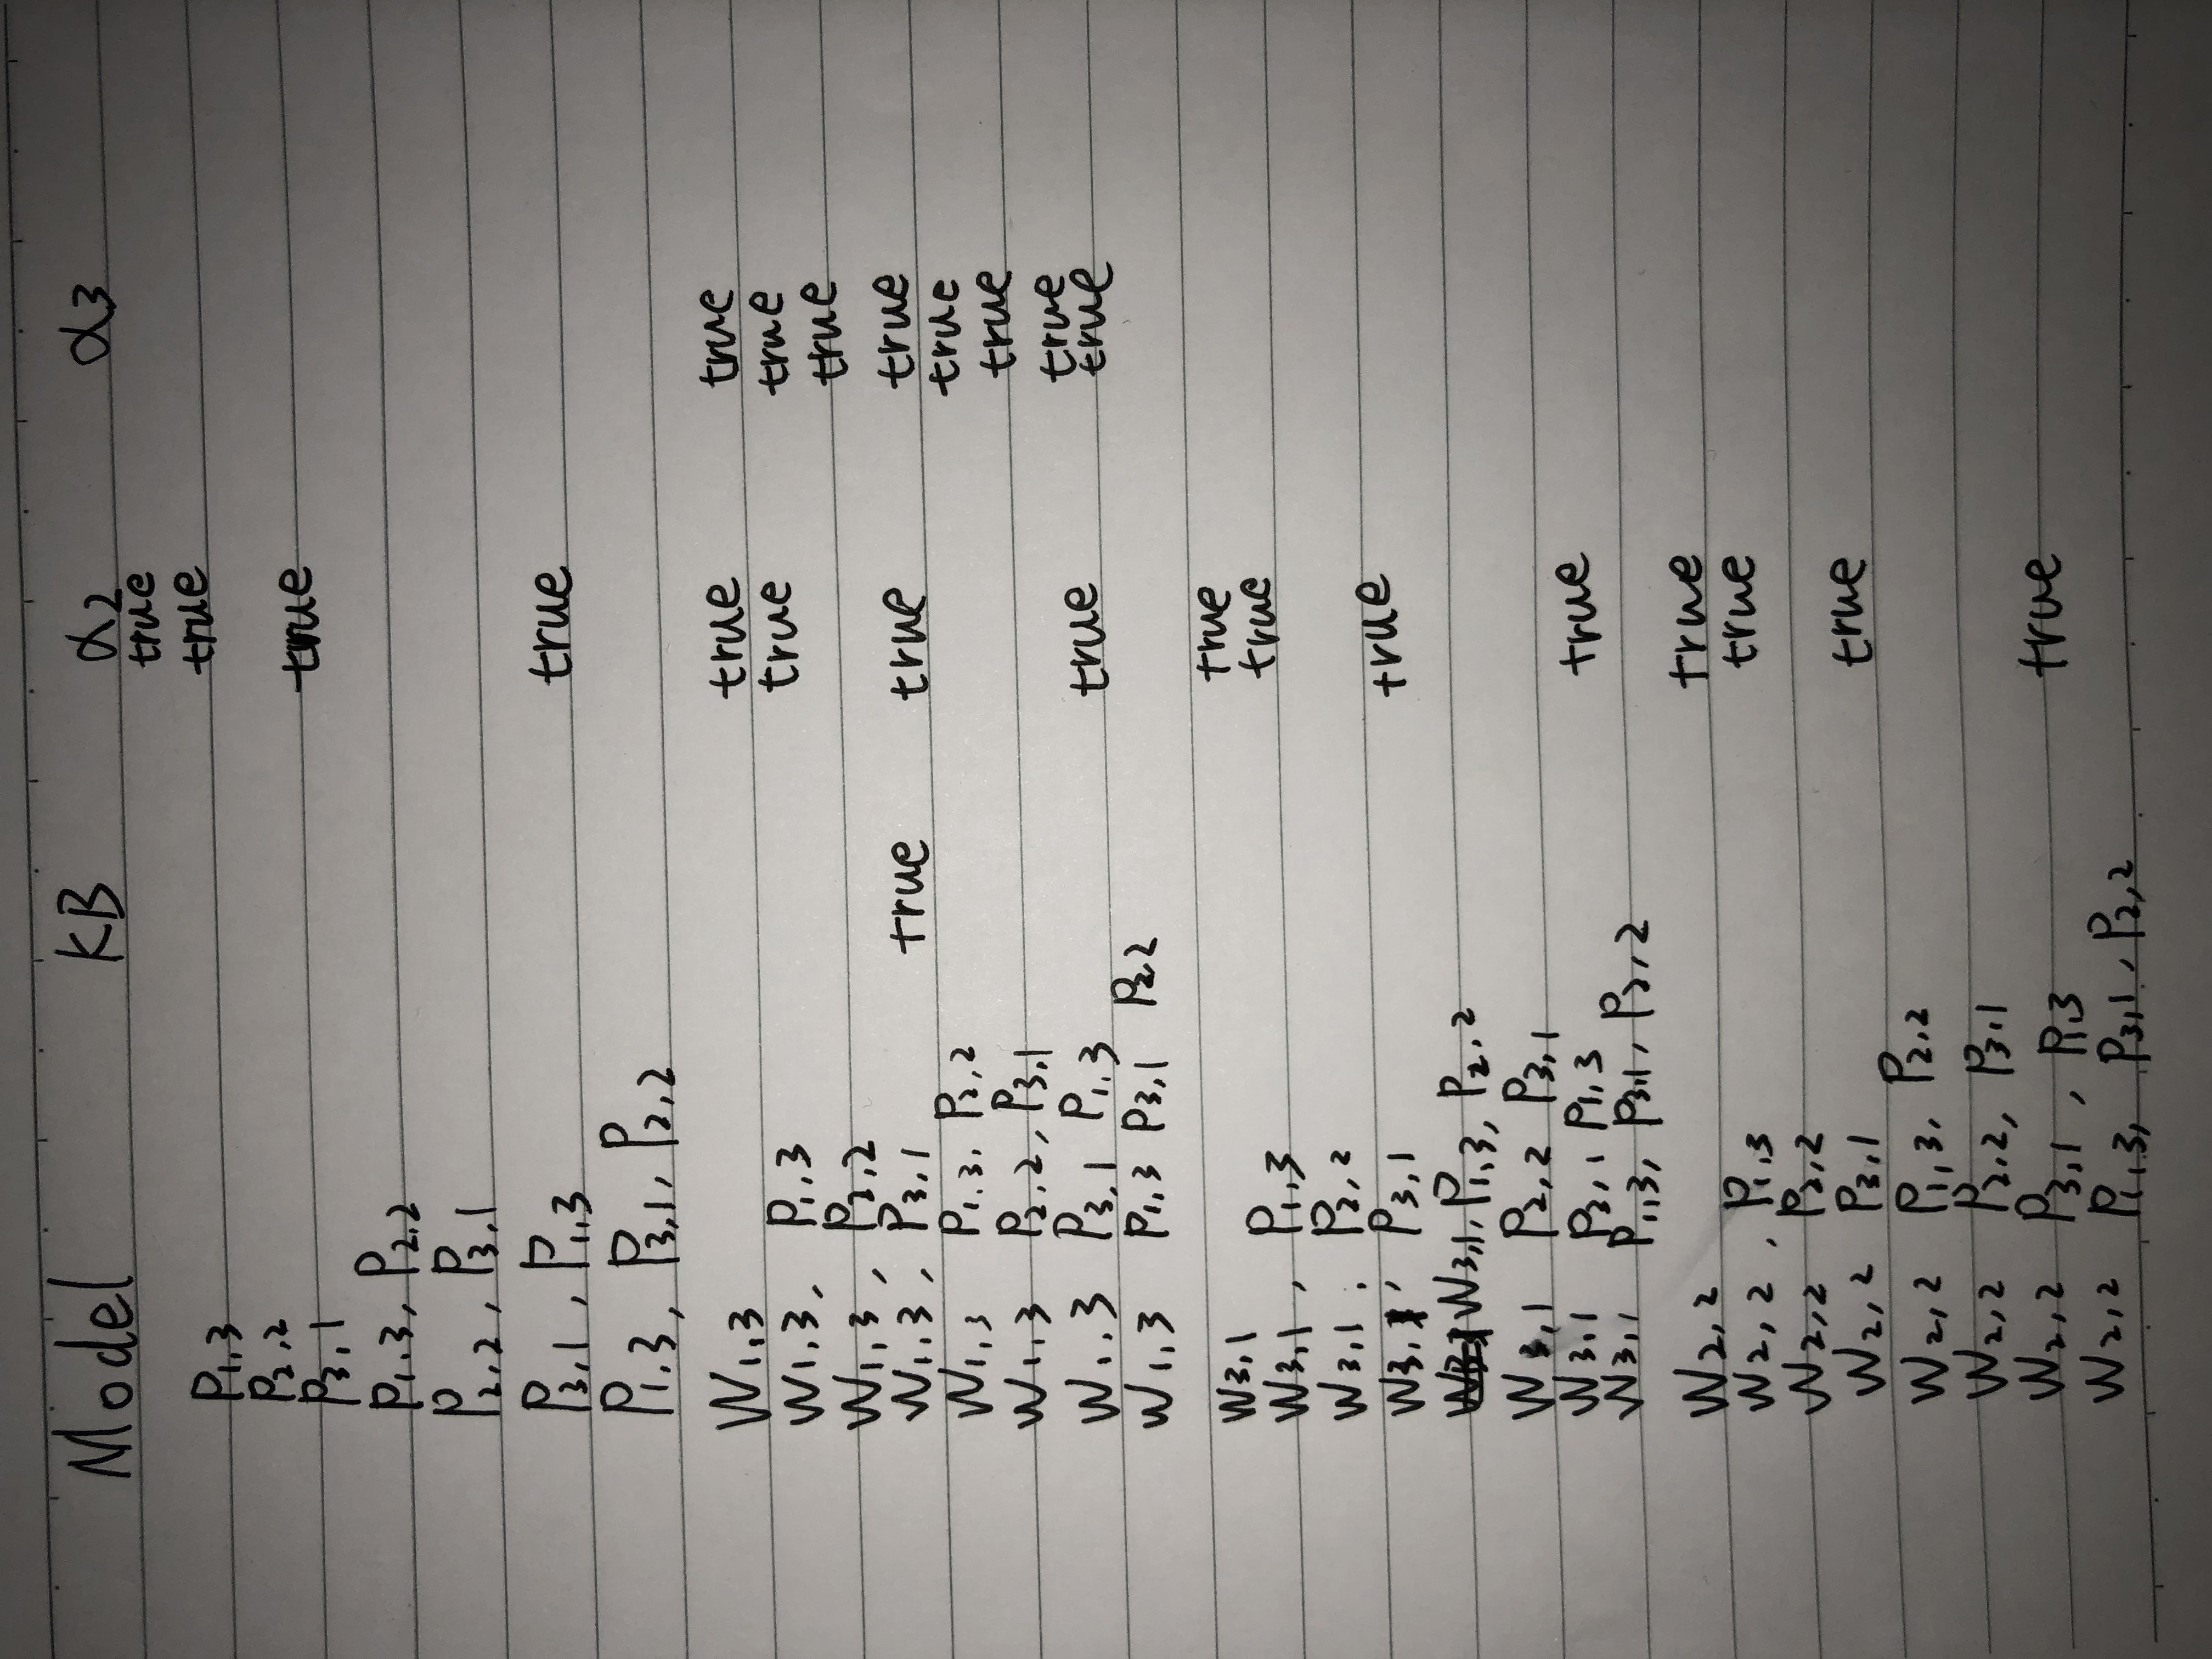 Model KB α2 α3
true
P1,3 true
P2,2
P3,1 true
P1,3, P2,2
P2,2, P3,1
P3,1, P1,3 true
P1,3, P3,1, P2,2
W1,3 true true
W1,3, P1,3 true true
W1,3, P2,2 true
W1,3, P3,1 true true true
W1,3 P1,3, P2,2 true
W1,3 P2,2, P3,1 true
W1,3 P3,1 P1,3 true true
W1,3 P1,3 P3,1 P2,2 true
W3,1 true
W3,1, P1,3 true
W3,1, P2,2
W3,1, P3,1 true
W3,1, P1,3, P2,2
W3,1 P2,2 P3,1
W3,1 P3,1 P1,3 true
W3,1 P1,3, P3,1, P2,2
W2,2 true
W2,2, P1,3 true
W2,2 P2,2
W2,2 P3,1 true
W2,2 P1,3, P2,2
W2,2 P2,2, P3,1
W2,2 P3,1, P1,3 true
W2,2 P1,3, P3,1, P2,2